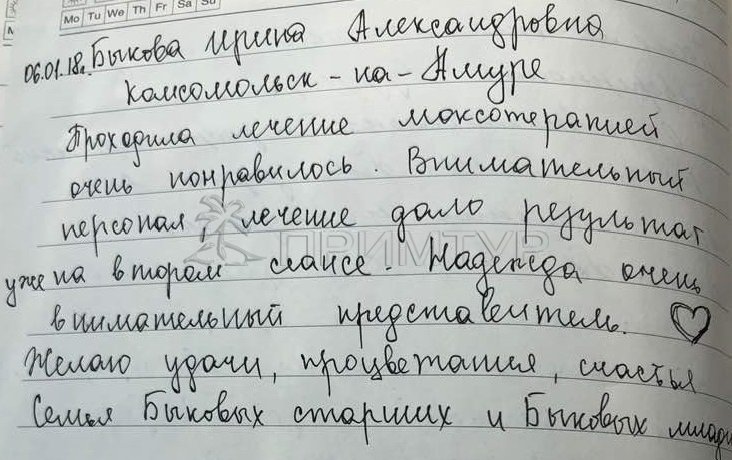 Mo Tu We Th Fr Sa Su
06.01.18г. Быкова Ирина Александровна
Комсомольск-на-Амуре
Проходила лечение моксотерапией
очень понравилось. Внимательный
персонал, лечение дало результат
уже на втором сеансе. Надежда очень
внимательный представитель.
Желаю удачи, процветания, счастья
Семья Быковых старших и Быковых
ПРИМТУР